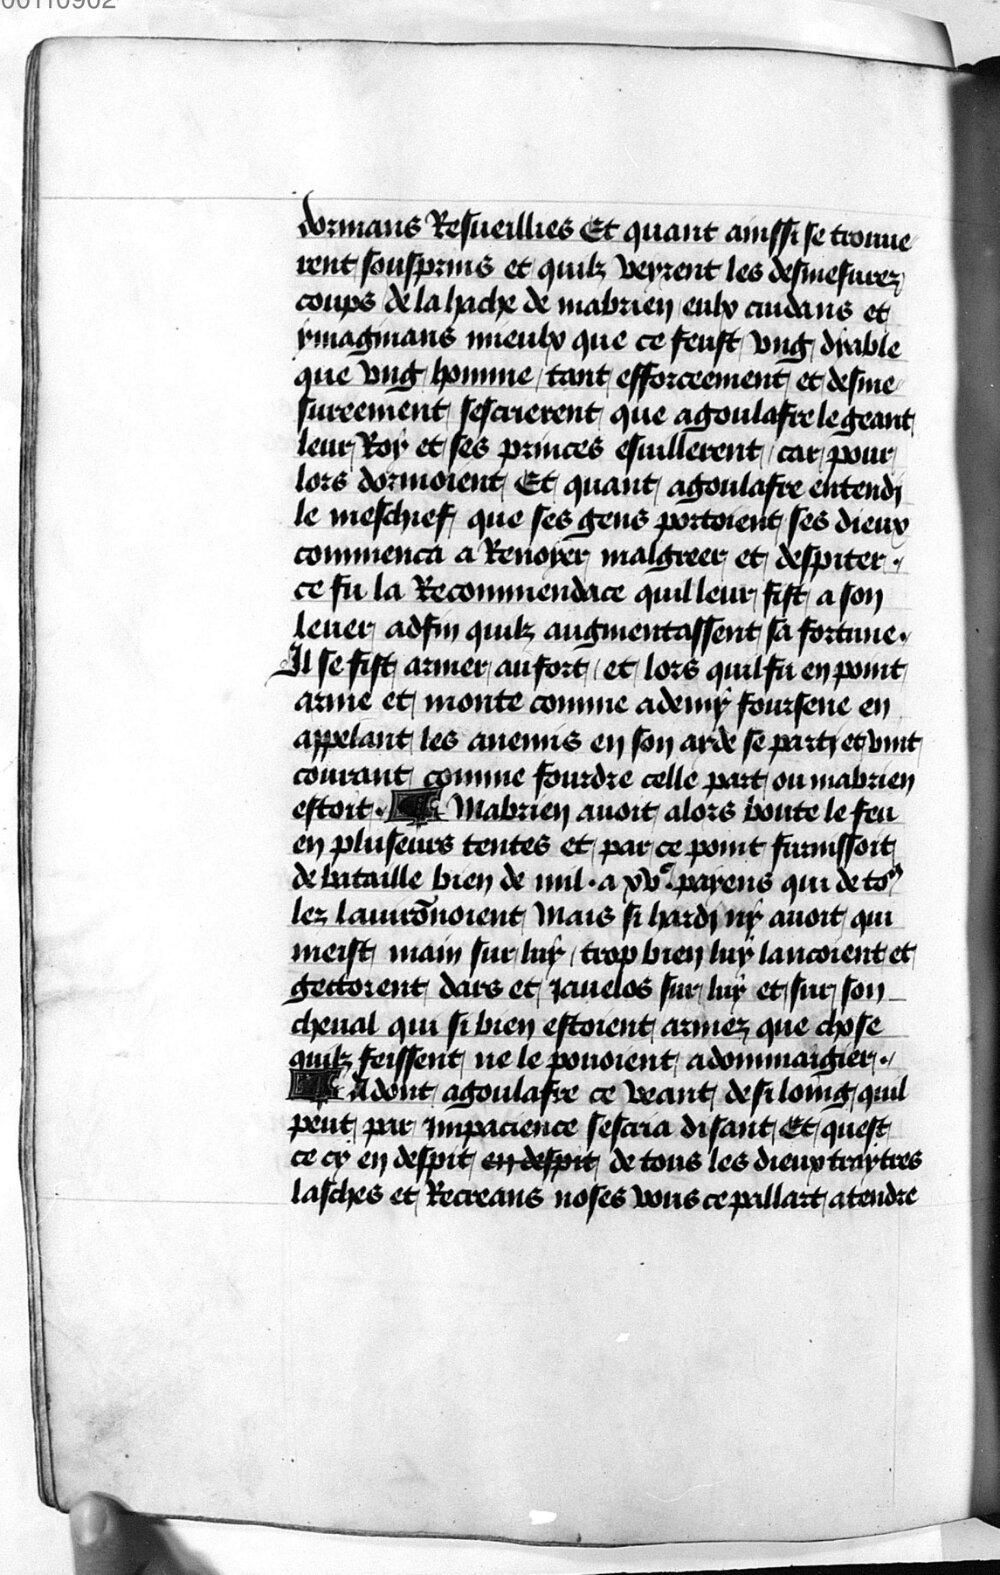 00110902
dormans Resueillies Et quant ainssi se trouue
rent sousprins et quilz veyrent les desmesurez
coups de la hache de mabrien eulx cuidans et
ymaginans mieulx que ce feust vng dyable
que vng homme tant efforceement et desme
sureement sescrierent que agoulafre le geant
leur Roy et ses princes esuillerent car pour
lors dormoient Et quant agoulafre entendi
le meschief que ses gens portoient ses dieux
commenca a Renoyer malgreer et despiter .
ce fu la Recommendace quil leur fist a son
leuer adfin quilz augmentassent sa fortune.
Il se fist armer au fort et lors quil fu en point
arme et monte comme ademy foursene en
appelant les anemis en son ayde se party et vint
courant comme fouldre celle part ou mabrien
estoit . Mabrien auoit alors boute le feu
en pluseurs tentes et par ce point furnissoit
de bataille bien de .a xvc. payens qui de to9
lez lauirōnoient Mais si hardy ny auoit qui
meist main sur luy trop bien luy lancoient et
gectoient dars et jauelos sur luy et sur son
cheual qui si bien estoient armez que chose
quilz feissent ne le pouoient adommaigier .
Adont agoulafre ce veant de si loing quil
peut par jmpacience sescria disant Et quest
ce cy en despit en despit de tous les dieux traytres
lasches et Recreans noses vous ce paillart atendre